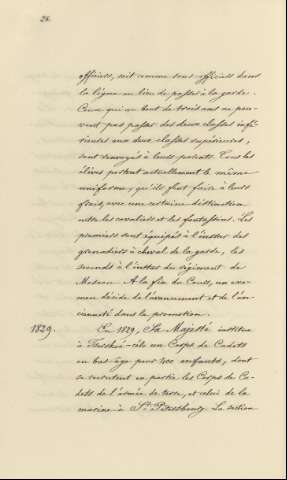 26.
officiers, soit comme sous-officiers dans
la ligne au lieu de passer à la garde.
Ceux qui au bout de trois ans ne peu-
vent pas passer des deux classes infé-
rieures aux deux classes supérieures,
sont renvoyés à leurs parents. Tous les
élèves portent actuellement le même
uniforme, qu'ils font faire à leurs
frais, avec une certaine distinction
entre les cavaliers et les fantassins. Les
premiers sont équipés à l'instar des
grenadiers à cheval de la garde, les
seconds à l'instar du régiment de
Moscou. A la fin du Cours, un exa-
men décide de l'avancement et de l'an-
cienneté dans la promotion.
1829. En 1829, Sa Majesté institua
à Tsarskoé-célo un Corps de Cadets
en bas âge pour 400 enfants, dont
se recrutent en partie les Corps de Ca-
dets de l'armée de terre, et celui de la
marine à St Pétersbourg. La section